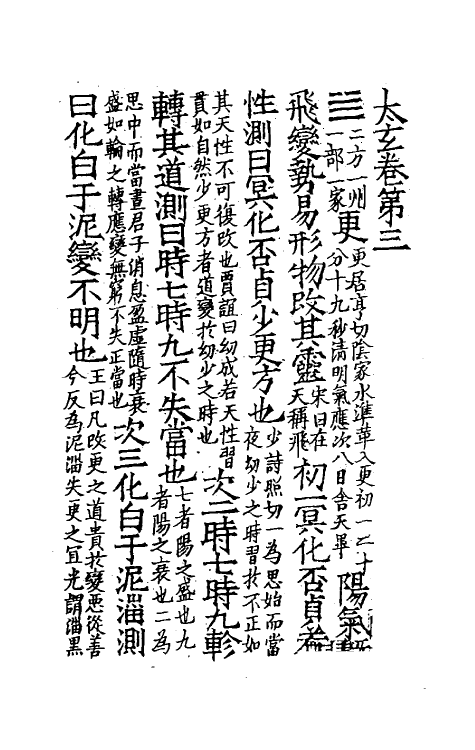 太玄卷第三
𝌡二方一州一部一家更更居亨切陰家水準革入更初一二十分十九秒清明氣應次八日舍天畢陽氣
飛變勢易形物改其靈宋曰在天稱飛初一冥化否貞若
性測曰冥化否貞少更方也少詩照切一為思始而當夜幼少之時習於不正如
其天性不可復改也賈誼曰幼成若天性習貫如自然少更方者道變於幼少之時也次二時七時九軫
轉其道測曰時七時九不失當也七者陽之盛也九者陽之衰也二為
思中而當晝君子消息盈虛隨時衰盛如輪之轉應變無窮不失正當也次三化白于泥淄測
曰化白于泥變不明也王曰凡改更之道貴於變惡從善今反為泥淄失更之宜光謂淄黑